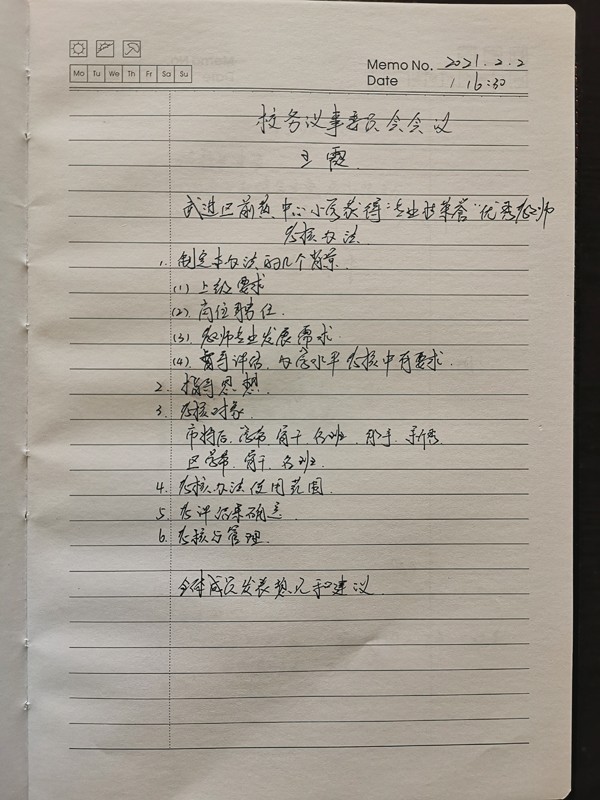 Memo No. 2021.2.2
Mo Tu We Th Fr Sa Su
Date 16:30
校务议事委员会会议
王霞
武进区前黄中心小学获得"专业性荣誉"优秀教师
考核办法
1. 制定本办法的几个背景
(1) 上级要求
(2) 岗位聘任
(3) 教师专业发展需求
(4) 督导评估、办学水平考核中有要求.
2. 指导思想
3. 考核对象
市特后、学带、骨干、名班、能手、新秀
区学带、骨干、名班
4. 考核办法使用范围
5. 考评结果确定
6. 考核与管理
全体成员发表想法和建议